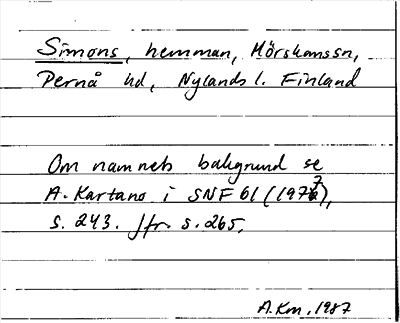 Simons, hemman, Mörskomssn,
Pernå hd, Nylands l. Finland
Om namnets bakgrund se
A. Kartano i SNF 61 (1973),
s. 243. Jfr s. 265.
A.Km. 1987